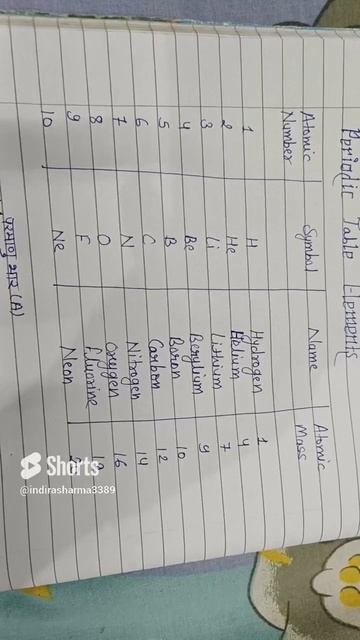 Periodic Table Elements
Atomic Number Symbol Name Atomic Mass
1 H Hydrogen 1
2 He Helium 4
3 Li Lithium 7
4 Be Berylium 9
5 B Boron 10
6 C Carbon 12
7 N Nitrogen 14
8 O Oxygen 16
9 F Fluorine
10 Ne Neon
परमाणु भार (A)
Shorts
@indirasharma3389